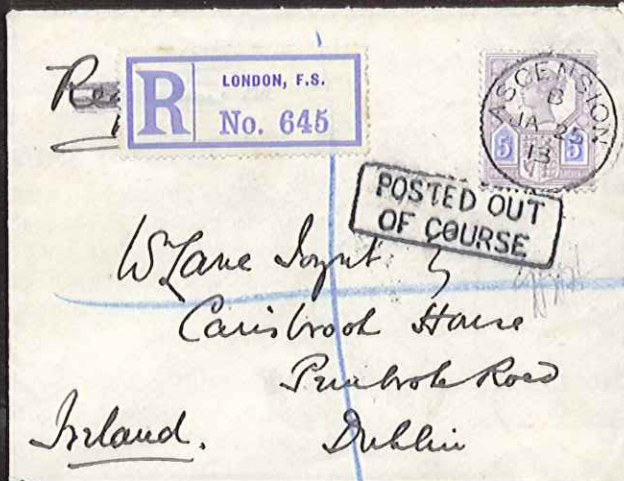 R
LONDON, F.S.
No. 645
ASCENSION
B
JA 25
13
5 5
POSTED OUT
OF COURSE
W Lane Joynt
Carisbrook House
Pembroke Road
Ireland. Dublin